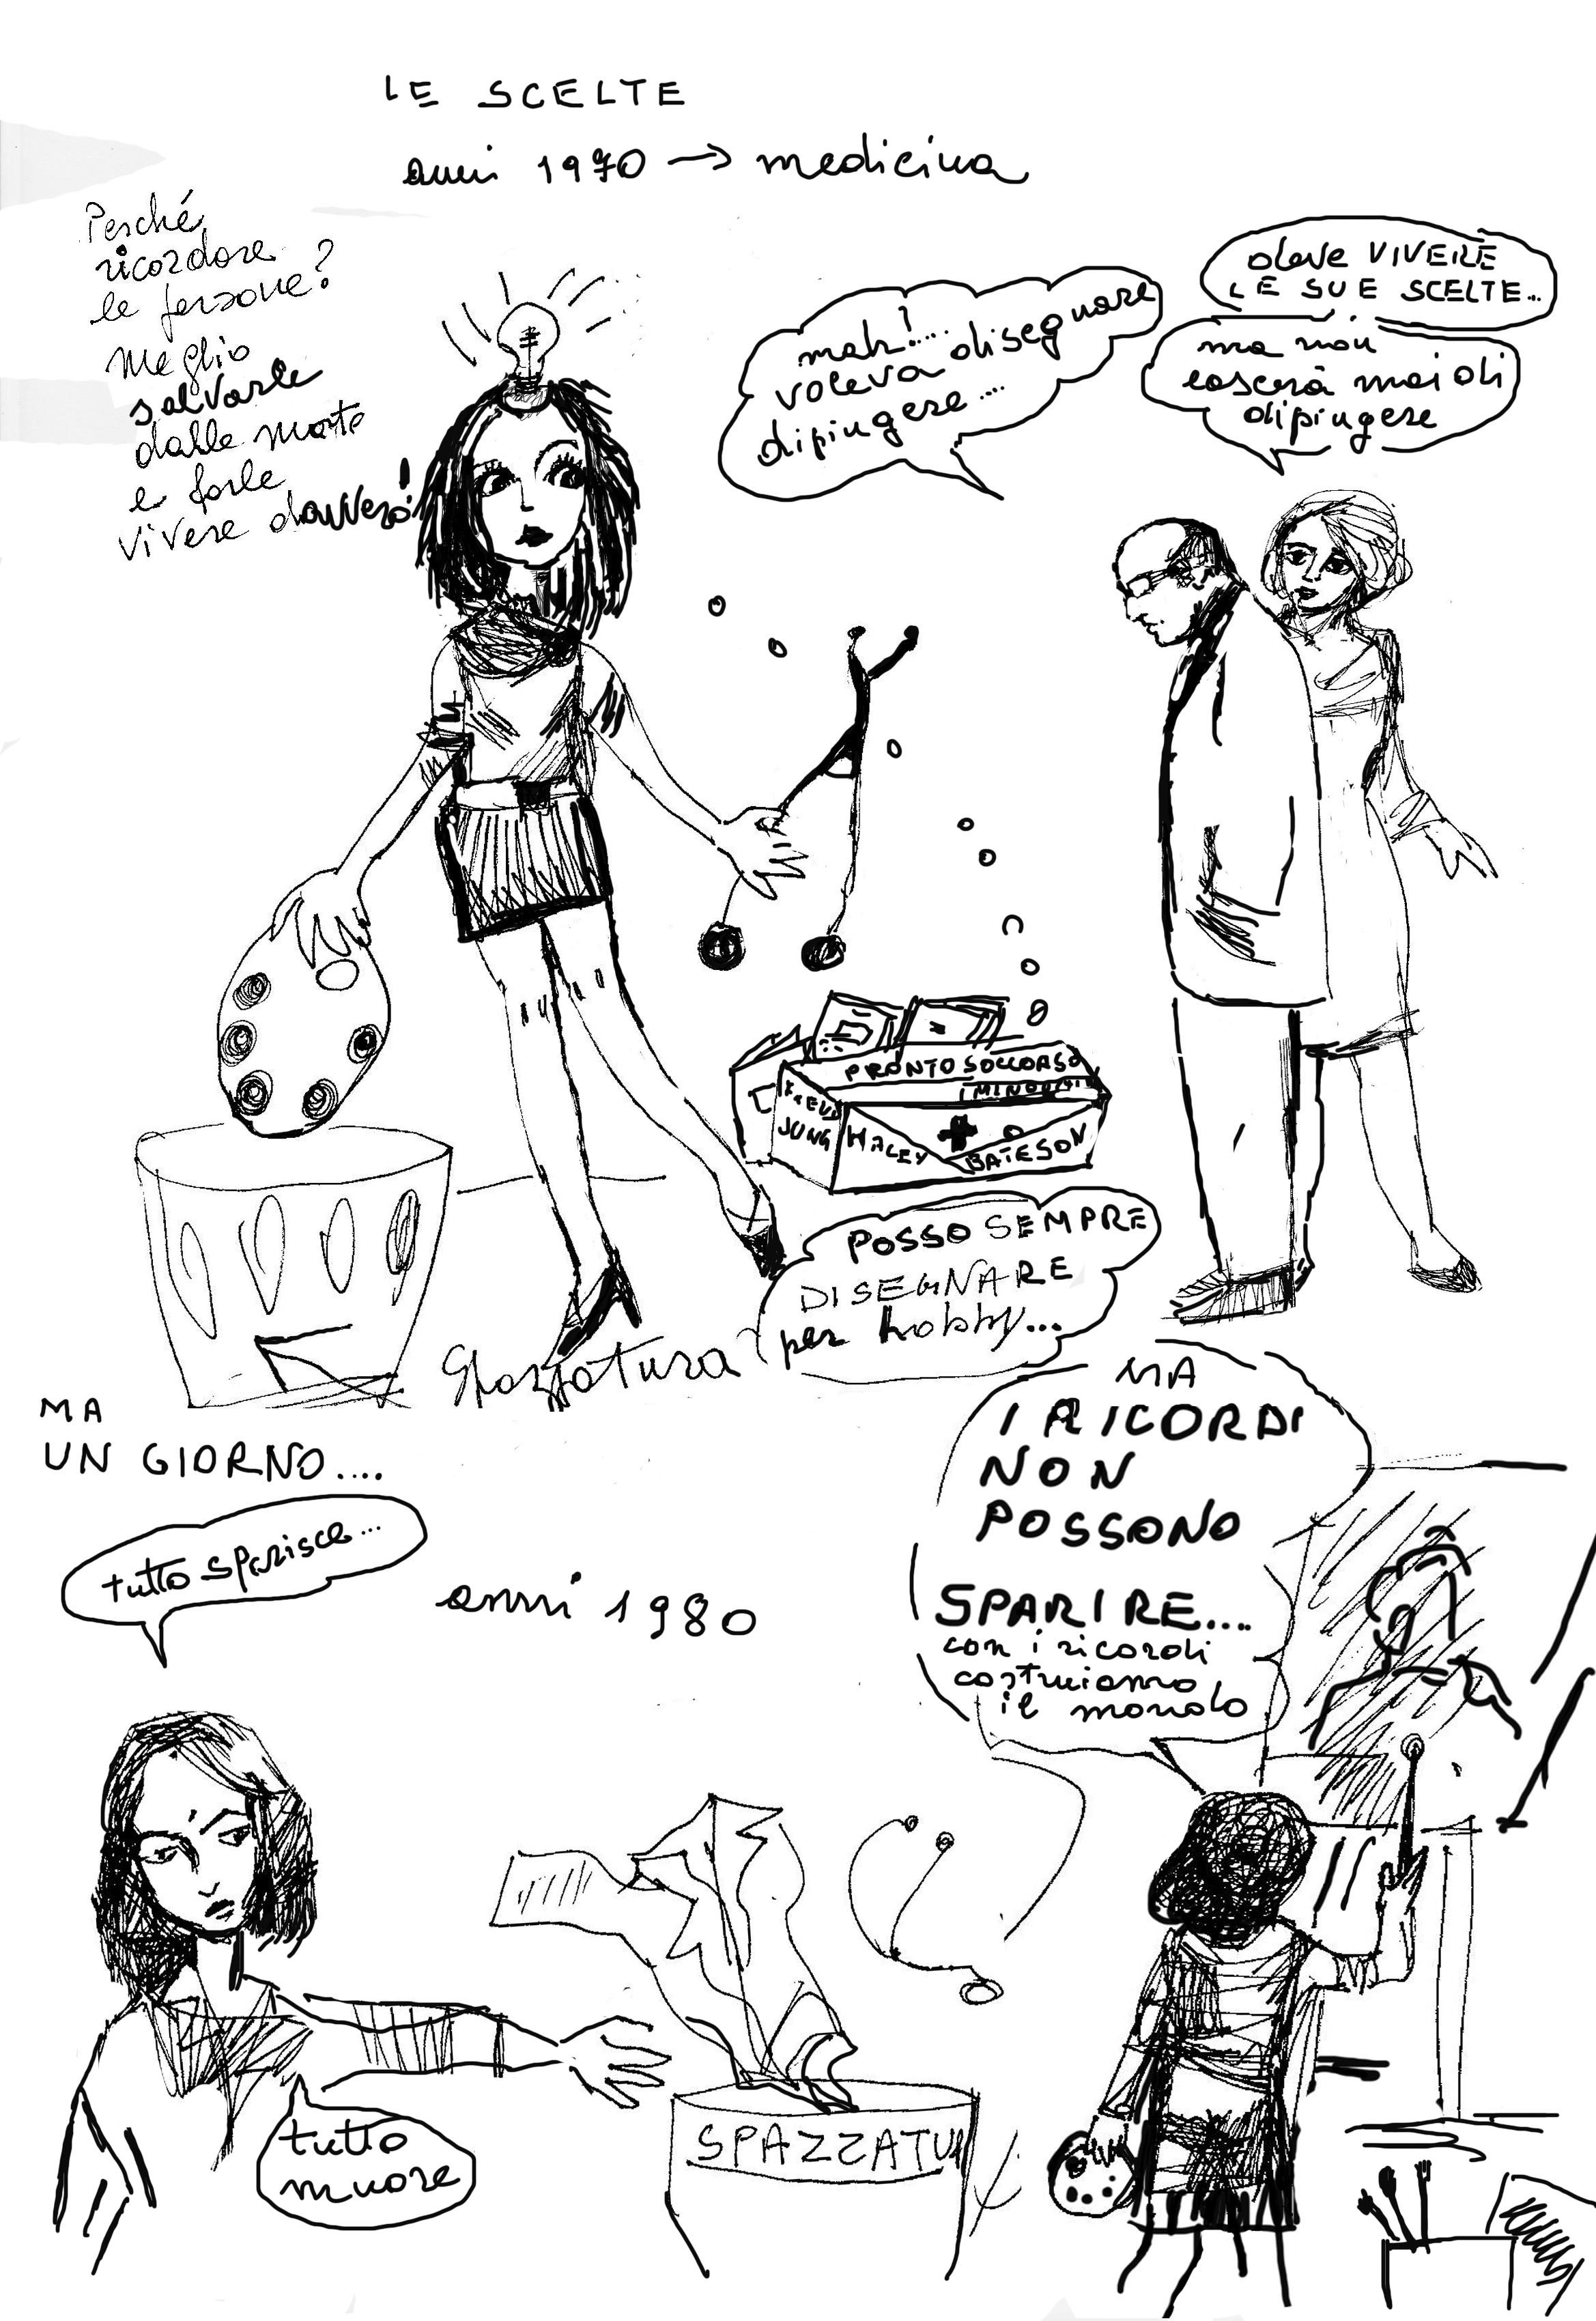 LE SCELTE
anni 1970 → medicina
Perché
ricordare
le persone?
Meglio
salvarle
dalla morte
e farle
vivere davvero!
mah!....
voleva disegnare
dipingere....
deve VIVERE
LE SUE SCELTE...
ma non
lascerà mai di
dipingere
PRONTO SOCCORSO
FREUD
JUNG
HALEY
BATESON
POSSO SEMPRE
DISEGNARE
per hobby...
Spazzatura
MA
UN GIORNO....
tutto sparisce...
anni 1980
MA
I RICORDI
NON
POSSONO
SPARIRE....
con i ricordi
costruiamo
il mondo
tutto
muore
SPAZZATU